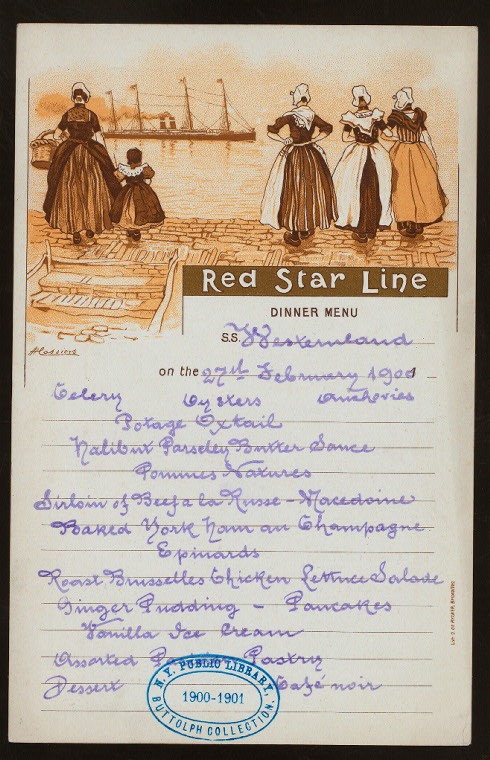 Red Star Line
DINNER MENU
S.S. Westernland
on the 27st February 1901
Celery Oysters Anchovies
Potage Oxtail
Halibut Parsley Butter Sauce
Pommes Natures
Sirloin of Beef a la Russe - Macedoine
Baked York Ham au Champagne
Epinards
Roast Brusselles Chicken Lettuce Salade
Ginger Pudding - Pancakes
Vanilla Ice Cream
Assorted Pastry
Dessert Café noir
N.Y. PUBLIC LIBRARY,
1900-1901
BUTTOLPH COLLECTION.